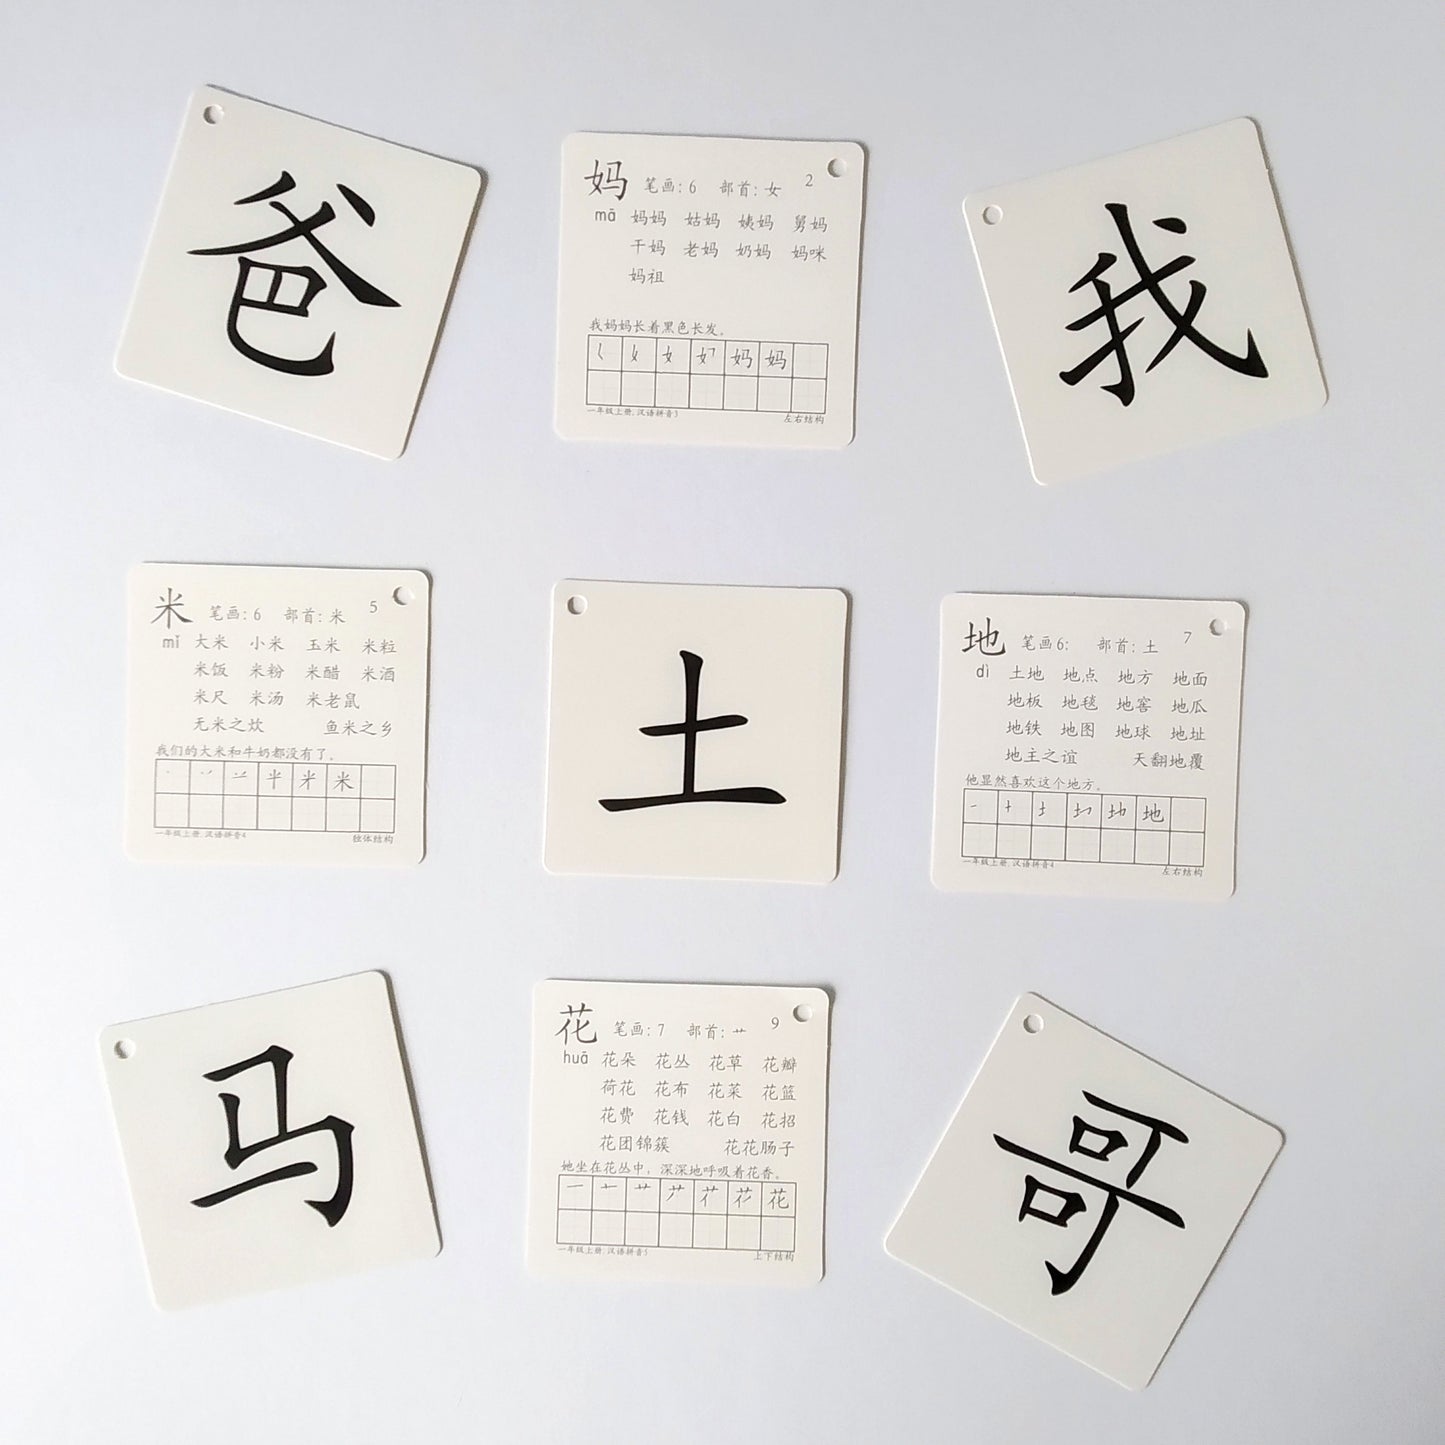 爸
妈 笔画：6 部首：女 2
mā 妈妈 姑妈 姨妈 舅妈
干妈 老妈 奶妈 妈咪
妈祖
我妈妈长着黑色长发。
妈 妈
一年级上册，汉语拼音3 左右结构
我
米 笔画：6 部首：米 5
mǐ 大米 小米 玉米 米粒
米饭 米粉 米醋 米酒
米尺 米汤 米老鼠
无米之炊 鱼米之乡
我们的大米和牛奶都没有了。
米
一年级上册，汉语拼音4 独体结构
土
地 笔画6： 部首：土 7
dì 土地 地点 地方 地面
地板 地毯 地窖 地瓜
地铁 地图 地球 地址
地主之谊 天翻地覆
他显然喜欢这个地方。
地
一年级上册，汉语拼音4 左右结构
马
花 笔画：7 部首：艹 9
huā 花朵 花丛 花草 花瓣
荷花 花布 花菜 花篮
花费 花钱 花白 花招
花团锦簇 花花肠子
她坐在花丛中，深深地呼吸着花香。
花
一年级上册，汉语拼音5 上下结构
哥